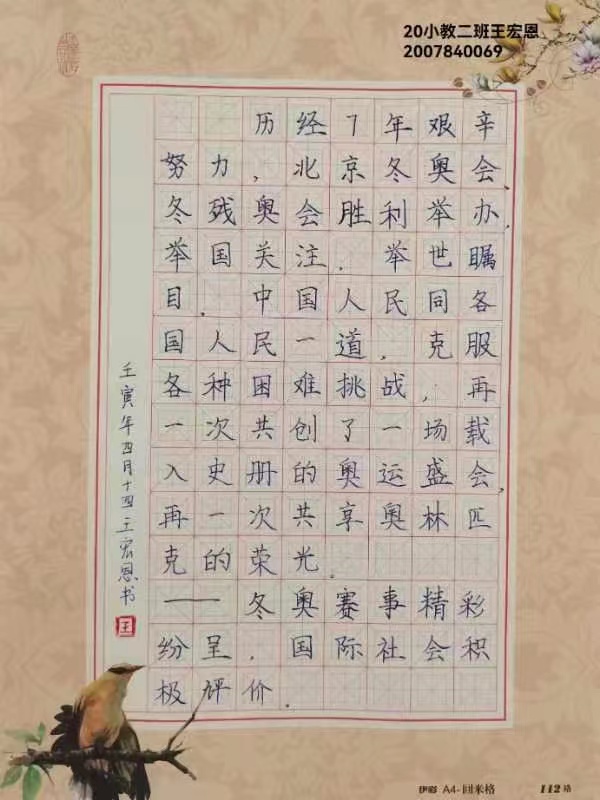 20小教二班王宏恩
2007840069
历经7年艰辛
努力,北京冬奥会,
冬残奥会胜利举办,
举国关注,举世瞩
目,中国人民同各
国人民一道,克服
各种困难挑战,再
一次共创了一场载
入史册的奥运盛会,
再一次共享奥林匹
克的荣光。
——冬奥赛事精彩
纷呈,国际社会积
极评价。
壬寅年四月十四王宏恩书
王
伊彩 A4-回米格 112格